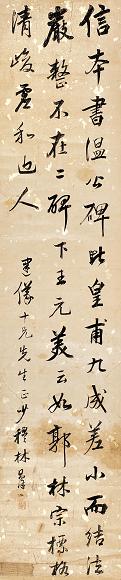 信本書溫公碑比皇甫九成差小而結法
嚴整不在二碑下王元美云如郭林宗標格
清峻虛和近人
建儀十兄先生正 少穆林則徐